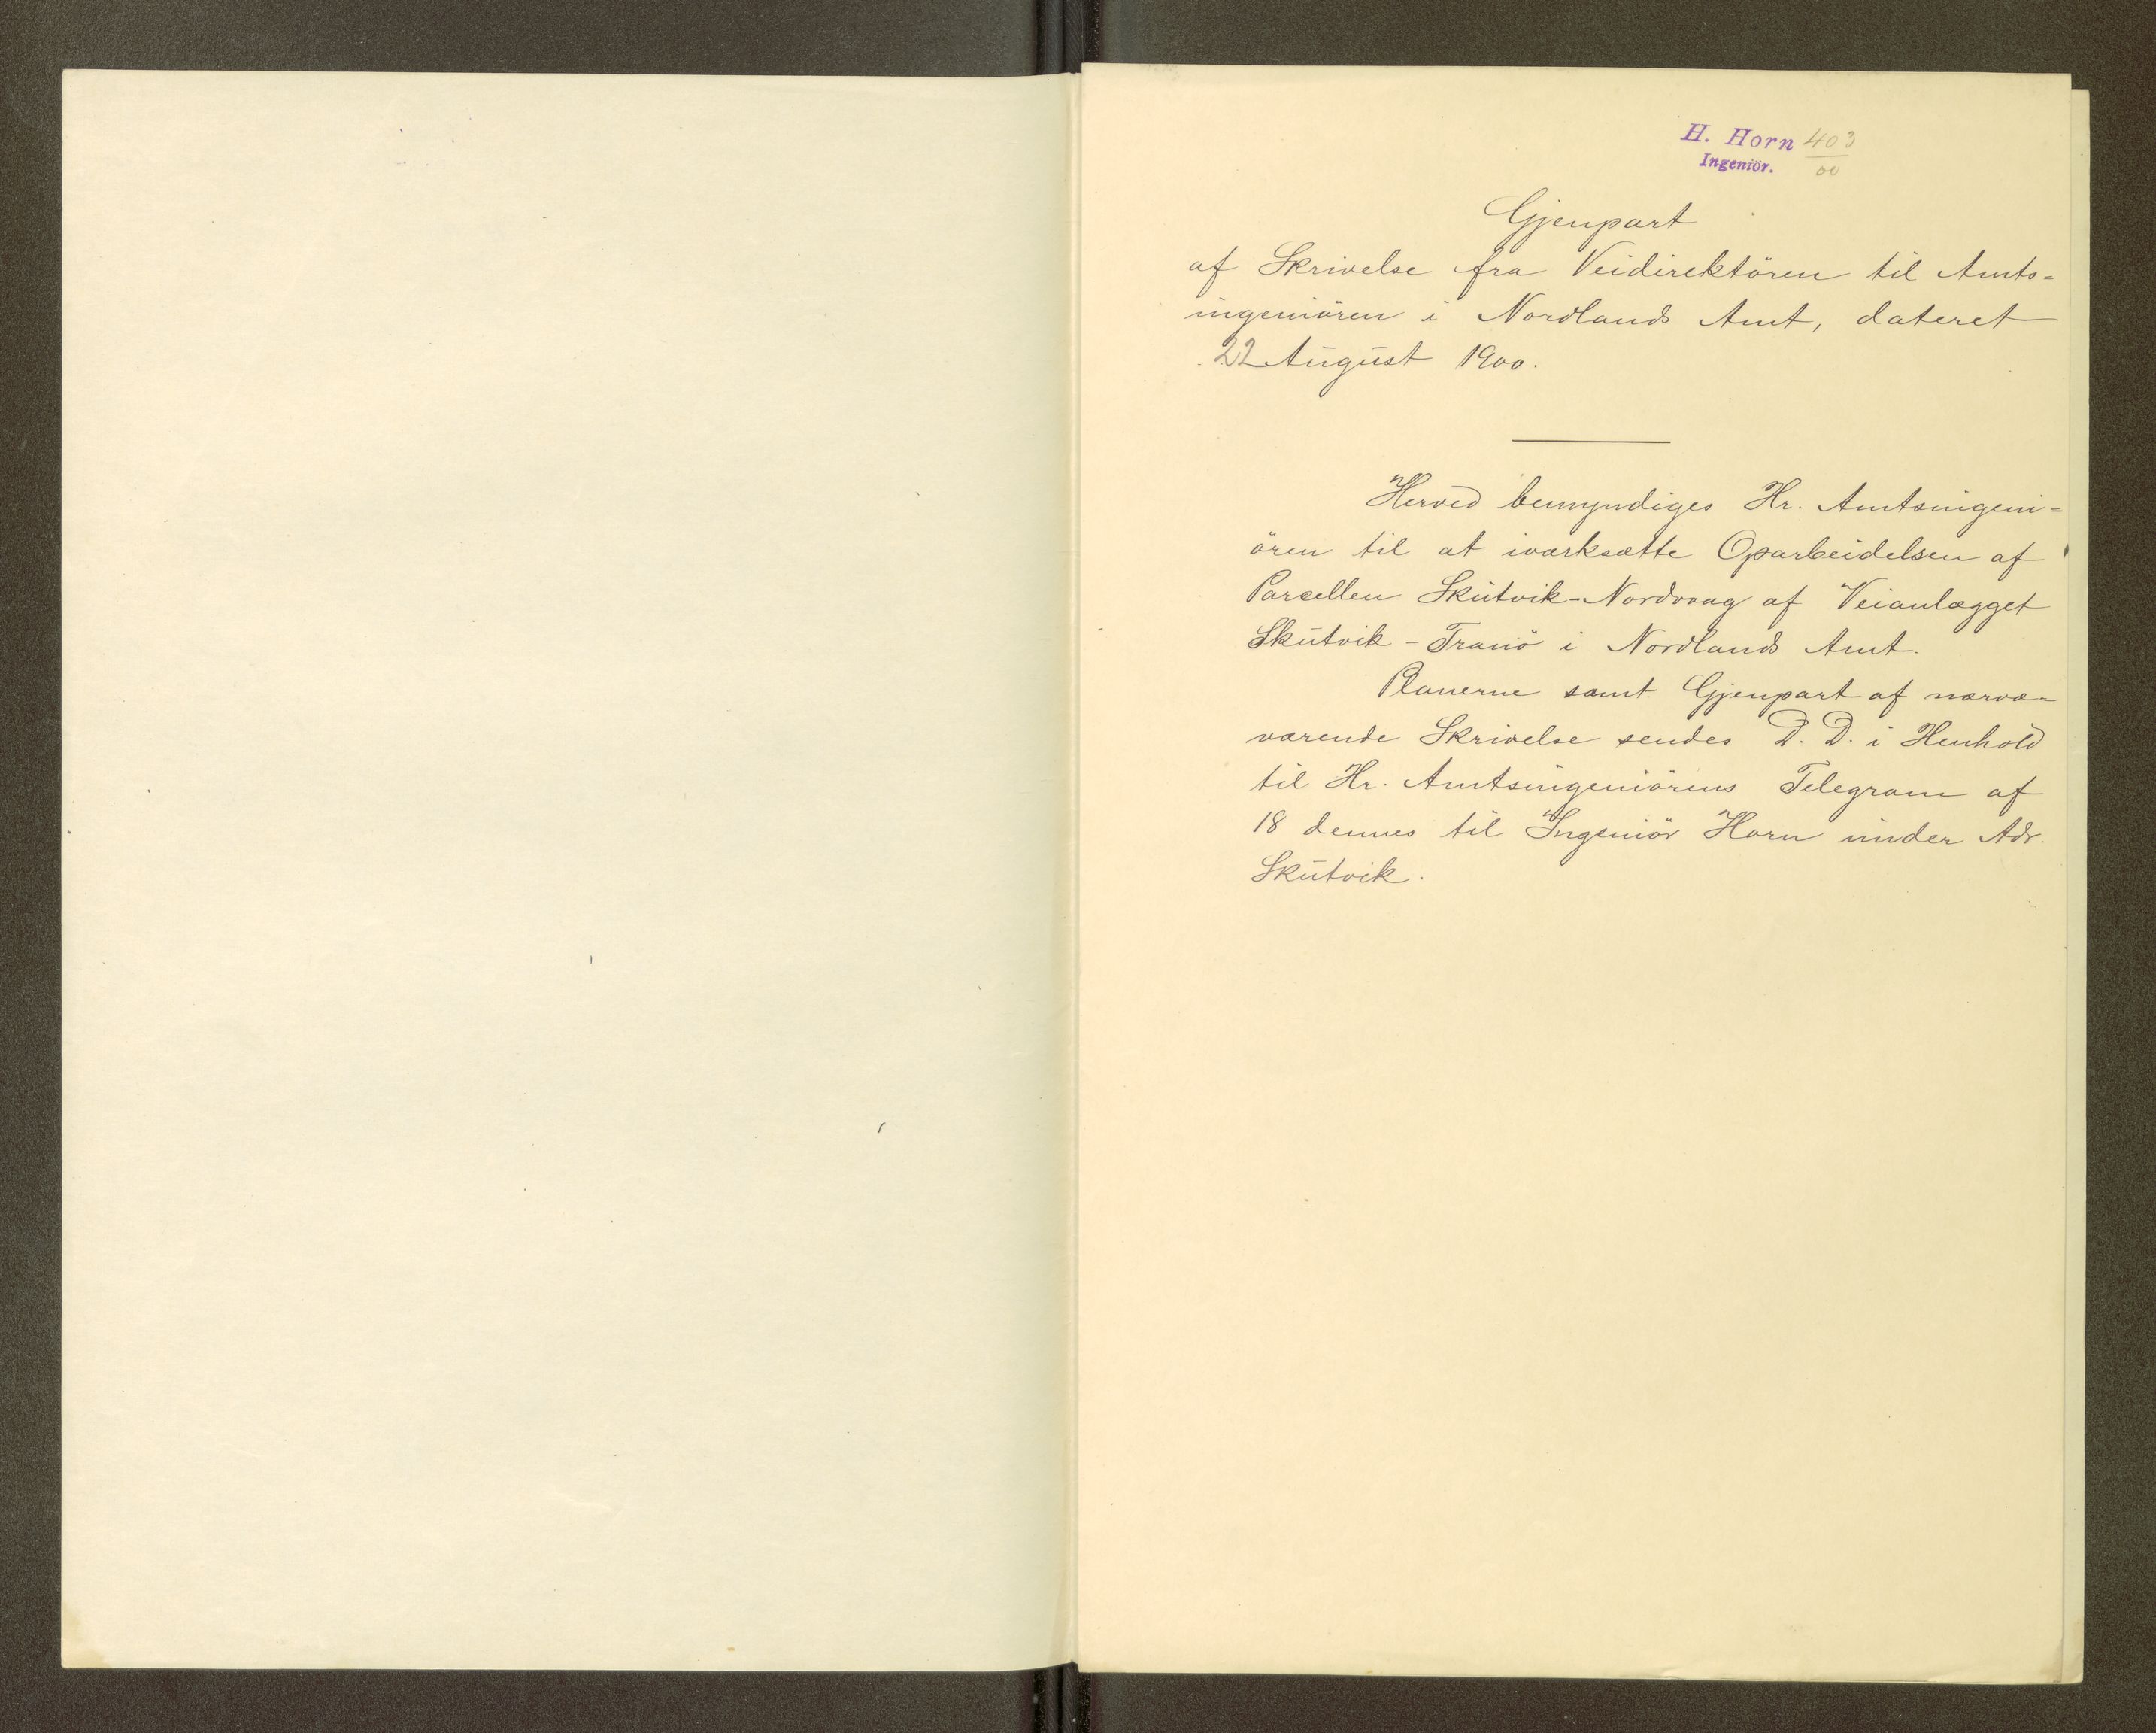 H. Horn 403
Ingeniör. 00
Gjenpart
af Skrivelse fra Veidirektören til Amts=
ingeniören i Nordlands Amt, dateret
22 August 1900.
"Herved bemyndiges Hr. Amtsingeni=
ören til at iværksætte Oparbeidelsen af
Parcellen Skutvik-Nordvaag af Veianlægget
Skutvik-Tranö i Nordlands Amt.
Planerne samt Gjenpart af nærvæ=
værende Skrivelse sendes D. D. i Henhold
til Hr. Amtsingeniörens Telegram af
18 dennes til Ingeniör Horn under Adr.
Skutvik.